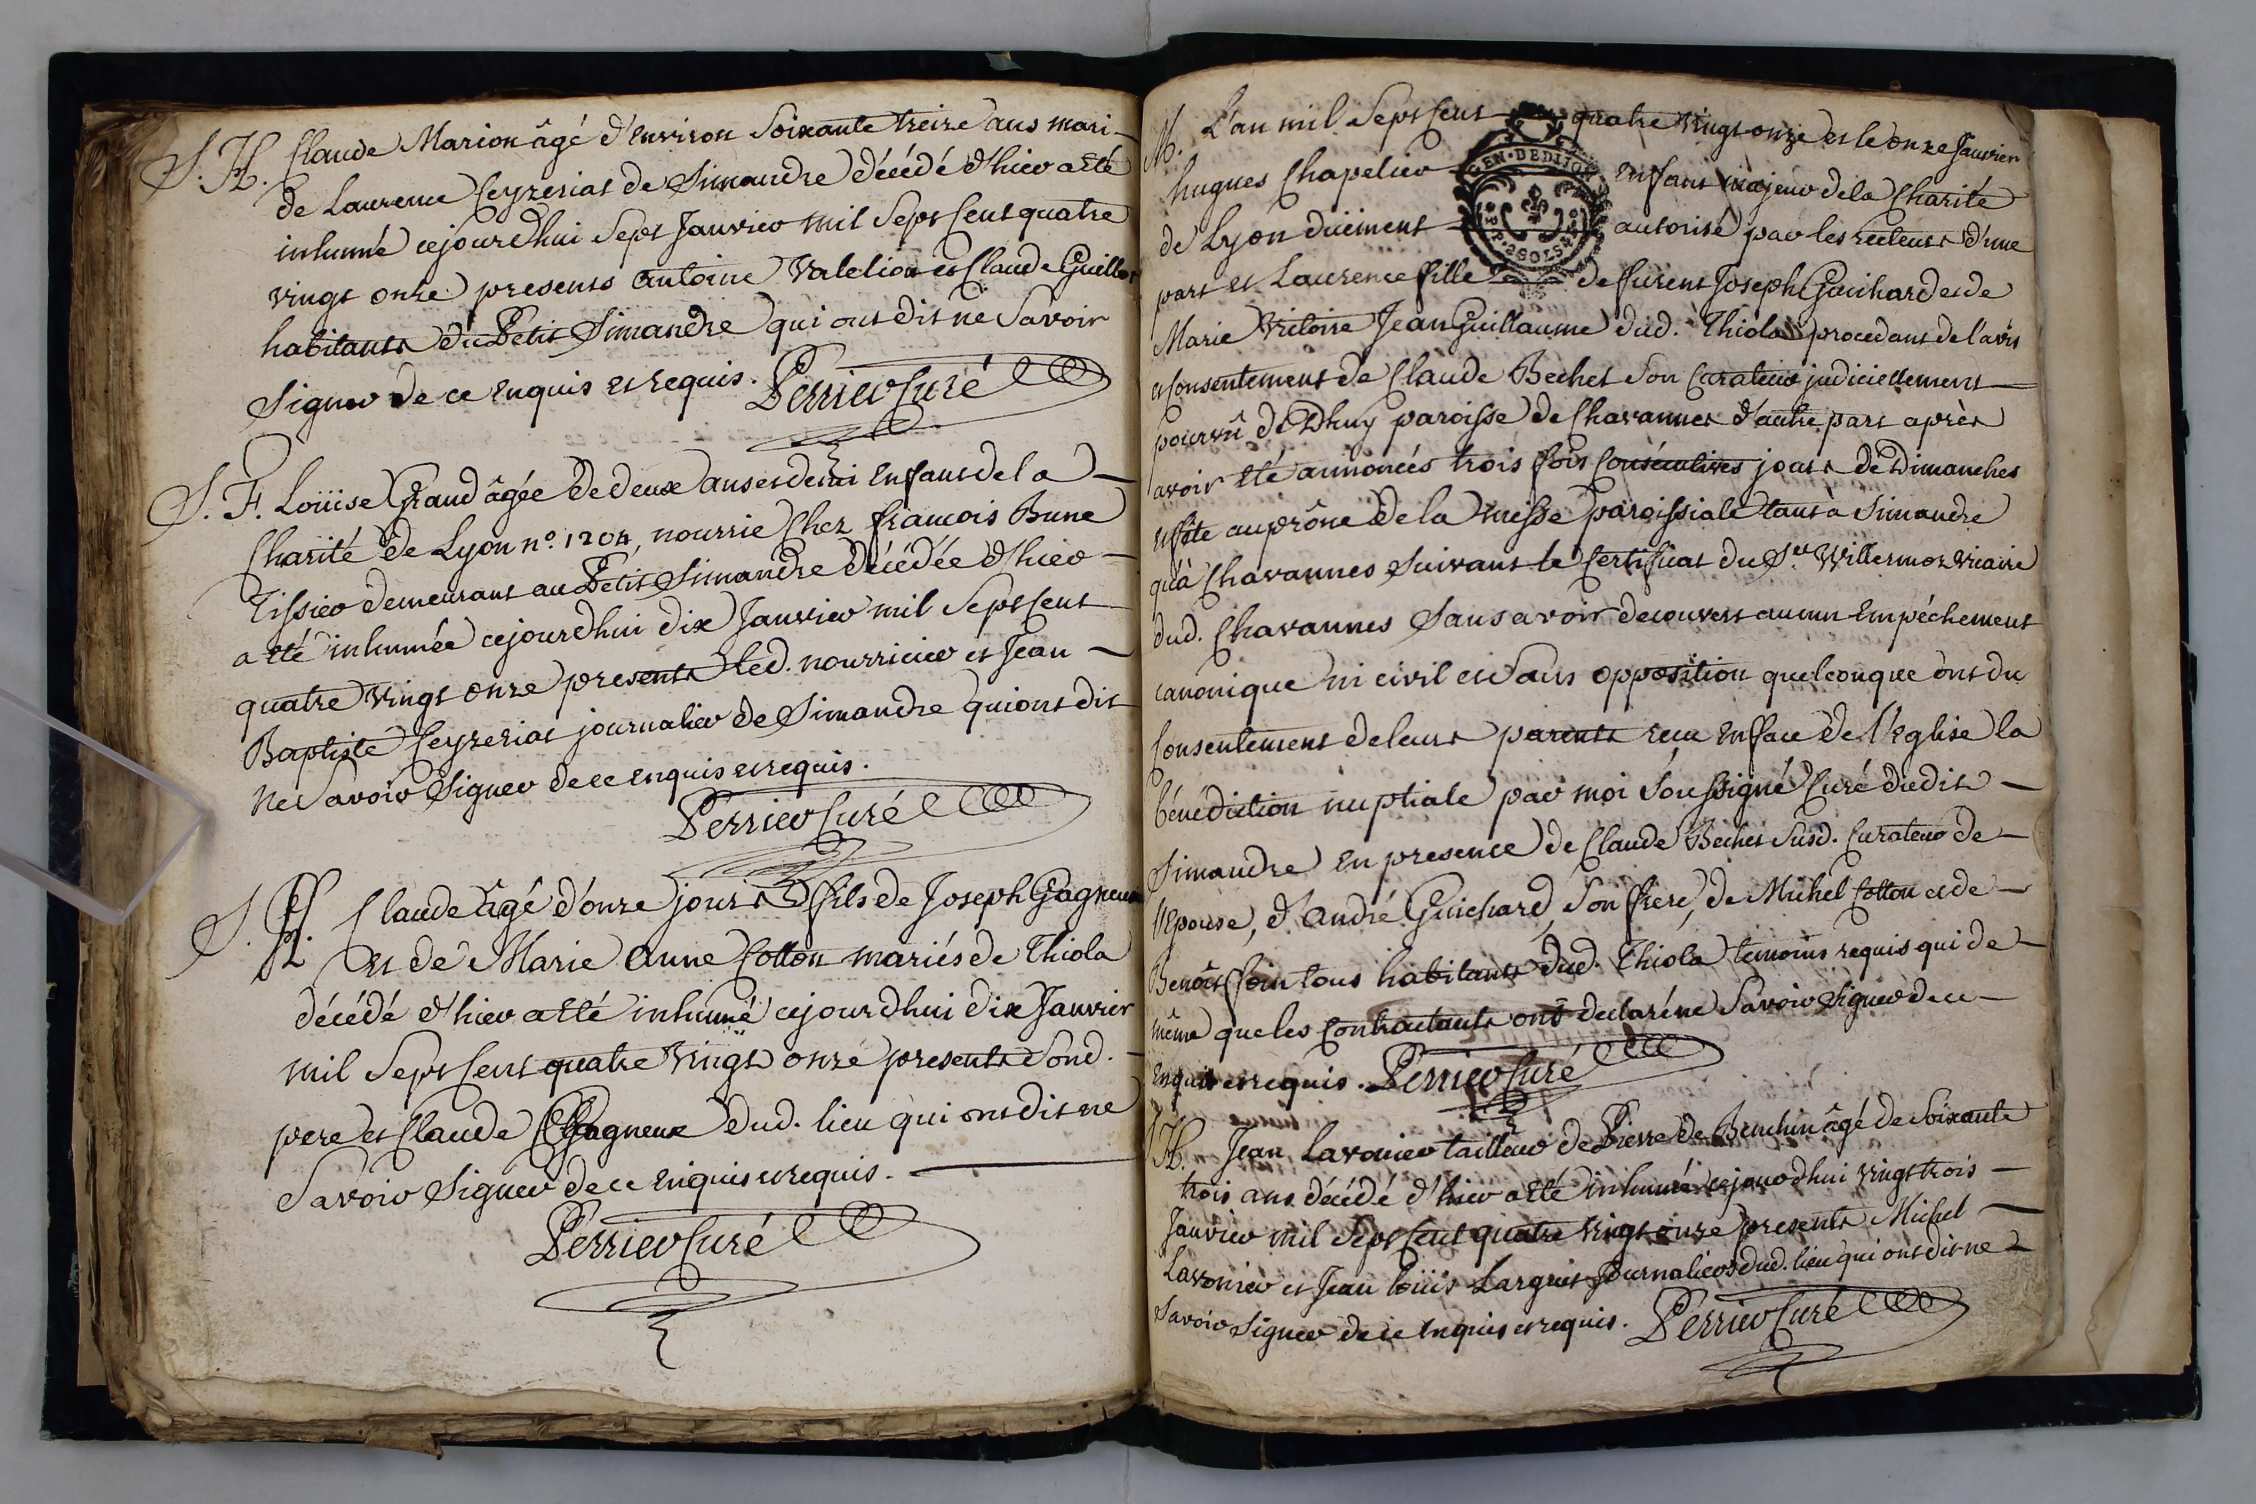 S. H. Claude Marion âgé d'environ Soixante treize ans mari
de Laurence Ceyzeriat de Simandre décédé d'hier a eté
inhumé cejourdhui Sept Janvier mil Sept Cent quatre
vingt onze presents antoine Valelion et Claude Guillot
habitants du Petit Simandre qui ont dit ne Savoir
Signer de ce Enquis et requis. Perrier Curé
S. F. Loüise Grand âgée de deux ans et demi Enfant de la
Charité de Lyon n°. 1204, nourrie Chez francois Bune
Tissier demeurant au Petit Simandre décédée d'hier
a eté inhumée cejourdhui dix Janvier mil Sept Cent
quatre vingt onze presents led. nourricier et Jean
Baptiste Ceyzeriat journalier de Simandre qui ont dit
ne Savoir Signer de ce enquis et requis.
Perrier Curé
S. H. Claude âgé d'onze jours fils de Joseph Gagneux
et de Marie Anne Cotton mariés de Thiola
décédé d'hier a eté inhumé cejourdhui dix Janvier
mil Sept Cent quatre vingt onze presents Sond.
pere et Claude Gagneux dud. lieu qui ont dit ne
Savoir Signer de ce Enquis et requis.
Perrier Curé
M. L'an mil Sept Cent quatre vingt onze et le onze Janvier
hugues Chapelier Enfant majeur de la Charité
GEN. DE DIJON
de Lyon düement autorisé par les recteurs d'une
part et Laurence fille de furent Joseph Guichard et de
Marie Victoire Jean Guillaume dud. Thiola procedant de l'avis
et Consentement de Claude Bechet Son Curateur judiciellement
pourvû de Dhuy paroisse de Chavannes d'autre part après
avoir eté annoncés trois fois Consécutives jours de Dimanches
et fete au prône de la messe paroissiale tant à Simandre
qu'à Chavannes Suivant le Certificat du Sr. Willermoz vicaire
dud. Chavannes Sans avoir decouvert aucun Empéchement
canonique ni civil et Sans opposition quelconque ont du
Consentement de leurs parents recu En face de l'Eglise la
bénédiction nuptiale par moi Soussigné Curé dudit
Simandre En presence de Claude Bechet Susd. Curateur de
l'Epouse, d'andré Guichard Son frere, de Michel Cotton et de
Benoît tous habitants dud. Thiola temoins requis qui de
même que les Contractants ont declaré ne Savoir Signer de ce
Enquis et requis. Perrier Curé
S. H. Jean Lavonier tailleur de Pierre de âgé de Soixante
trois ans décédé d'hier a eté inhumé cejourdhui vingt trois
Janvier mil Sept Cent quatre vingt onze presents Michel
Lavonier et Jean loüis Larguet Journaliers dud. lieu qui ont dit ne
Savoir Signer de ce Enquis et requis. Perrier Curé